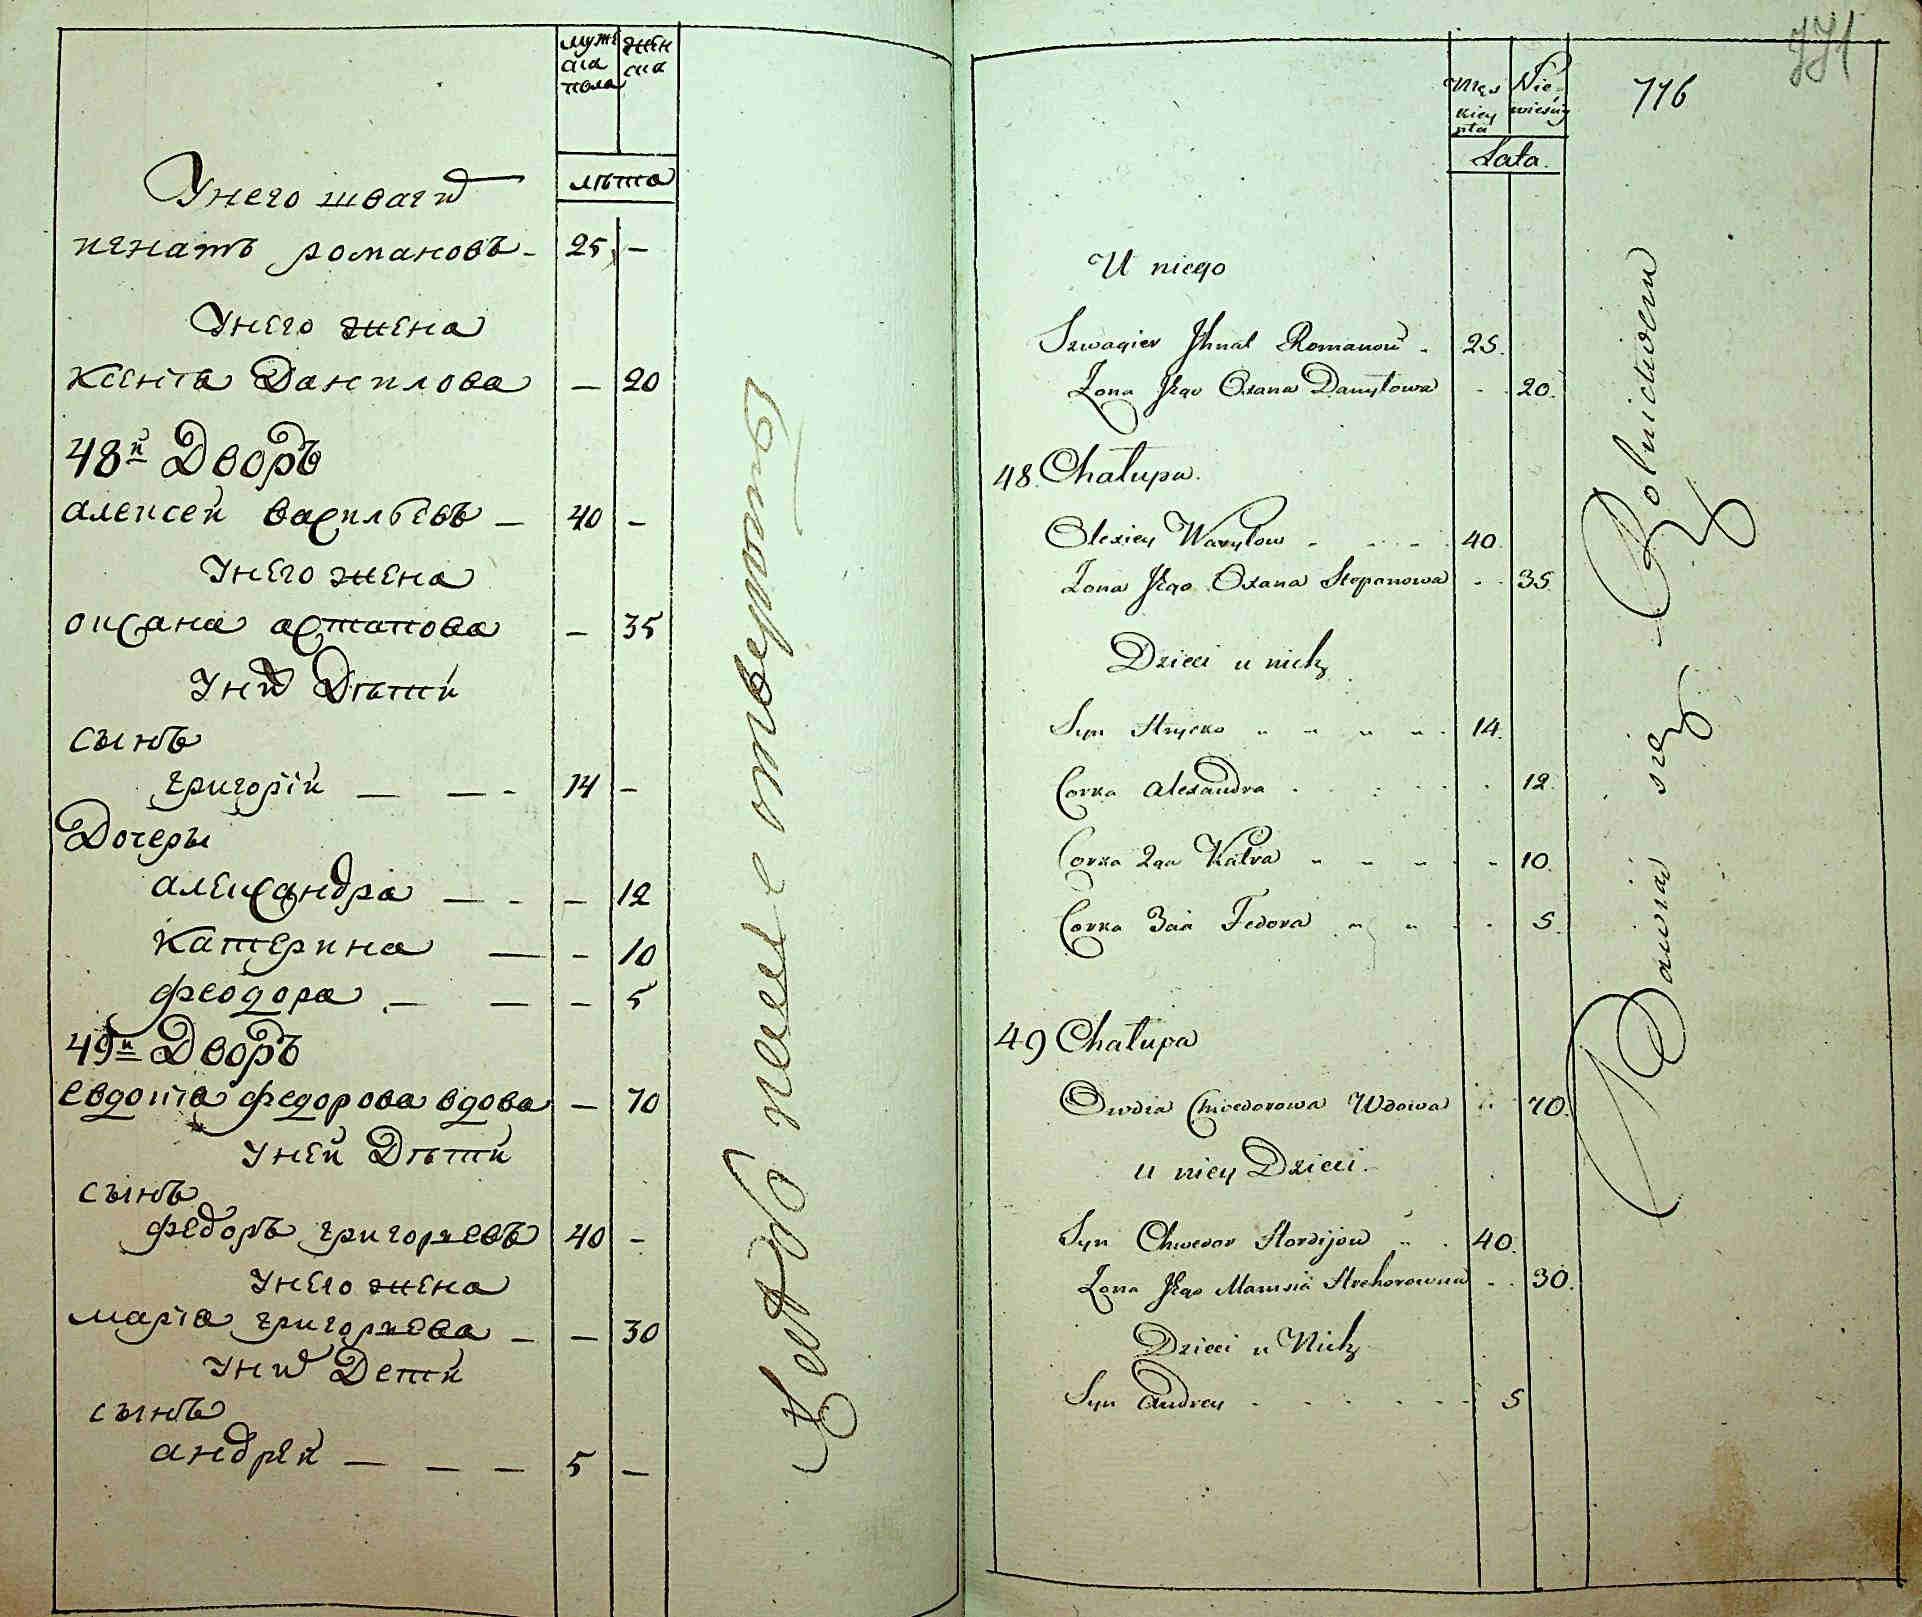 мужс жен
ска ска
пола
лѣта
Унего швагѵ
игнатъ романовъ - 25 —
Унего жена
Ксенія Данилова — 20
48й Дворъ
алексей васильевъ — 40 —
Унего жена
оксана астапова — 35
Уних Дѣти
сынъ
григорій — — - 14 —
Дочеры
александра — - — 12
катерина — - 10
феодора - — - 5
49й Дворъ
евдокія федорова вдова — 70
Уней Дѣти
сынъ
федоръ григорьевъ 40 -
Унего жена
марія григорьева - — 30
Уних Дети
сынъ
андрей — — — 5 —
771
Męs Nie-
kiey wieściey
płci
776
Lata.
U niego
Szwagier Jhnat Romanow - 25.
Żona Jego Oxana Danyłowa - - 20.
48. Chałupa.
Olexiey Wasylow - - - - 40.
Żona Jego Oxana Stepanowa - - 35
Dzieci u nich
Syn Hrycko " " " " - 14.
Corka Alexandra - - - - - - 12.
Corka 2ga Katra " - - - - 10.
Corka 3cia Fedora " " - - 5.
49 Chałupa
Owdia Chwedorowa Wdowa - 70.
u niey Dzieci.
Syn Chwedor Hordijow " - 40.
Żona Jego Marusia Hrehorowna - - 30.
Dzieci u Nich
Syn Andrey - - - - - - 5
Bawią się Rolnictwem